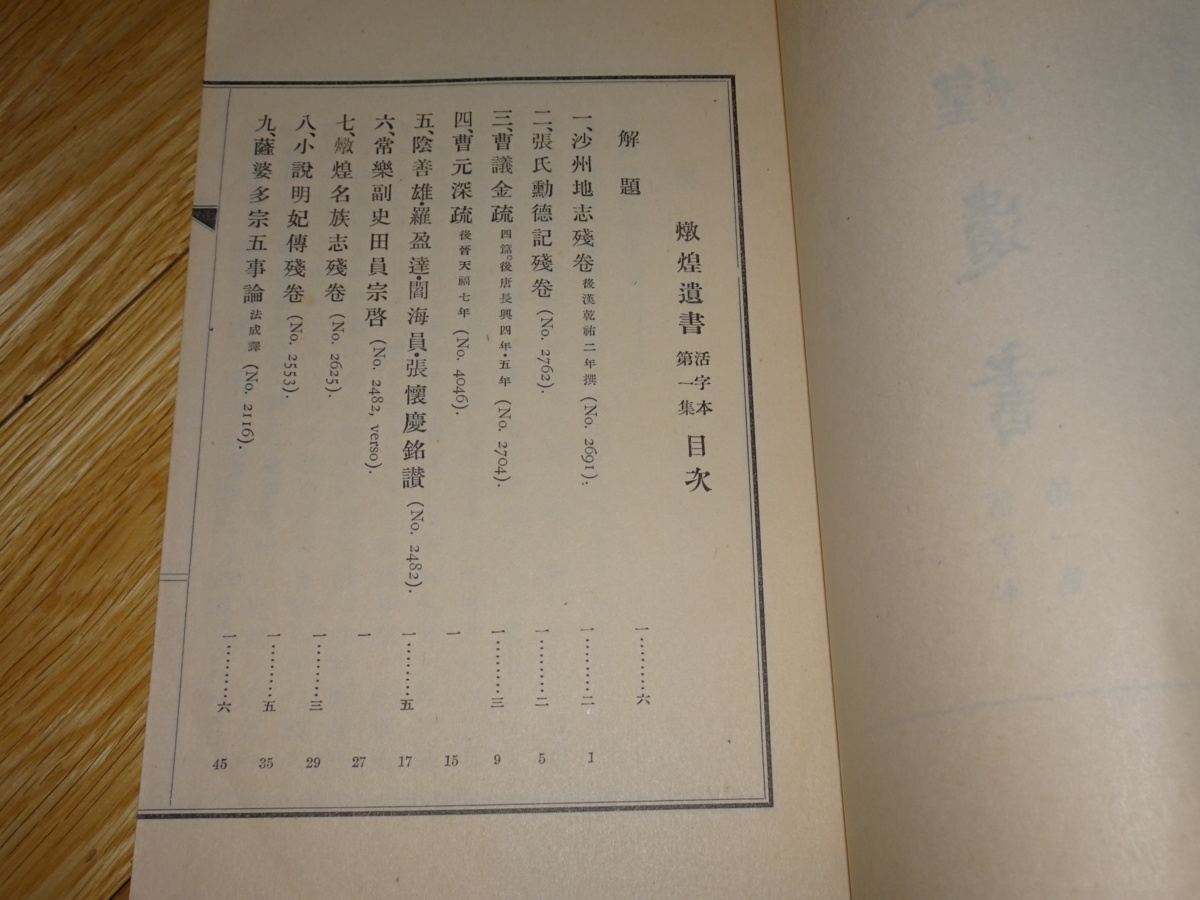 燉煌遺書 活字本第一集 目次
解題 一………六
一、沙州地志殘卷 後漢乾祐二年撰 (No. 2691). 一………二 1
二、張氏勳德記殘卷 (No. 2762). 一………二 5
三、曹議金疏 四篇。後唐長興四年・五年 (No. 2704). 一………三 9
四、曹元深疏 後晉天福七年 (No. 4046). 一 15
五、陰善雄・羅盈達・閻海員・張懷慶銘讃 (No. 2482). 一………五 17
六、常樂副史田員宗啓 (No. 2482, verso). 一 27
七、燉煌名族志殘卷 (No. 2625). 一………三 29
八、小說明妃傳殘卷 (No. 2553). 一………五 35
九、薩婆多宗五事論 法成譯 (No. 2116). 一………六 45